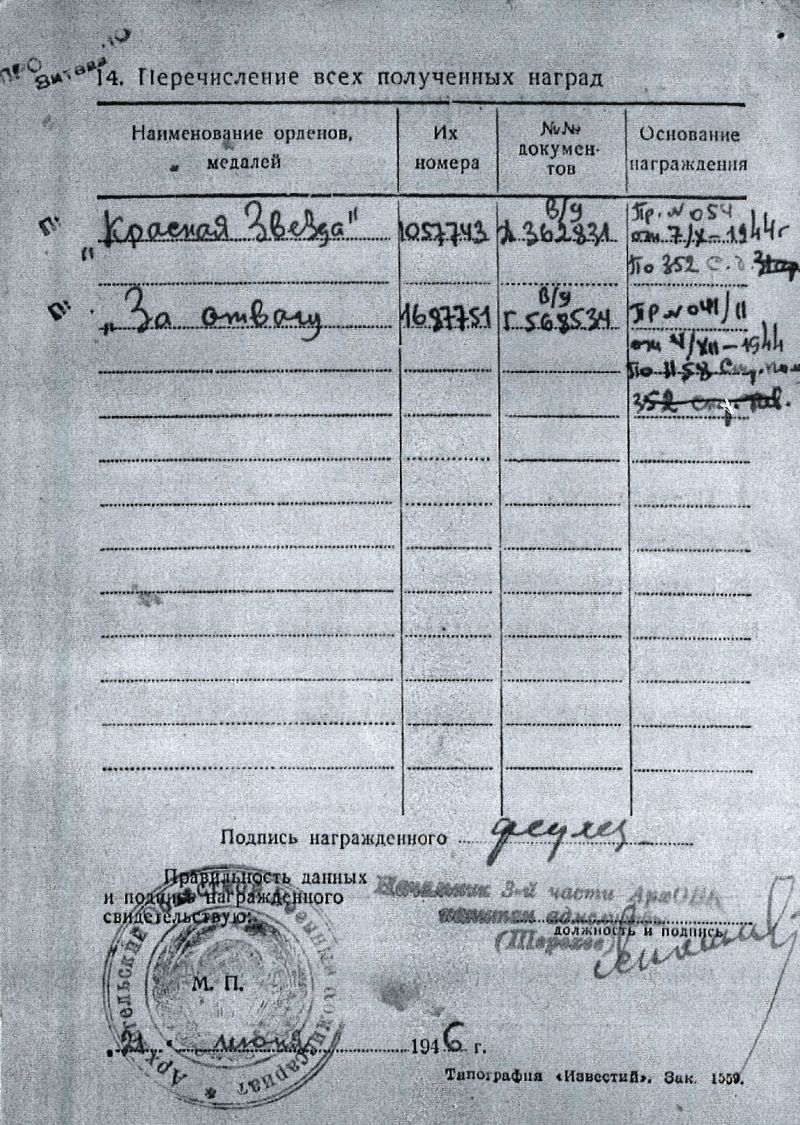 14. Перечисление всех полученных наград
Наименование орденов, медалей
Их номера
№№ документов
Основание награждения
П:
"Красная Звезда"
1057743
в/у
Л 362831
Пр. № 054
от 7/X-1944г
По 352 С. д.
П:
"За отвагу
1687751
в/у
Г 568534
Пр. № 041/II
от 4/XII-1944
По 1158
352
Подпись награжденного
Правильность данных
и подпись награжденного
свидетельствую:
Начальник 3-й части АрхОВК
капитан адм. службы
(Терехов)
должность и подпись
Архангельский областной военный комиссариат
М. П.
21 июня 1946 г.
Типография «Известий». Зак. 1559.